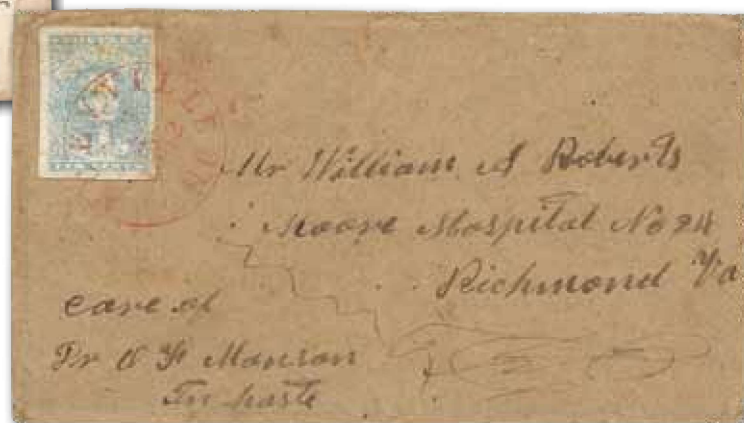 Mr William A Roberts
Moore Hospital No 24
Richmond Va
care of
Dr O F Manson
In haste